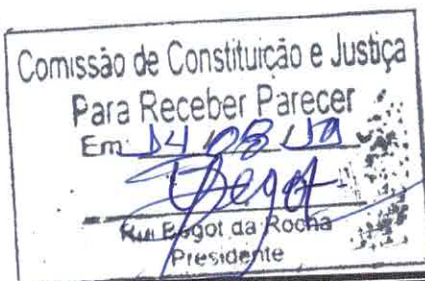 Comissão de Constituição e Justiça
Para Receber Parecer
Em 14/08/19
Begot
Rui Begot da Rocha
Presidente